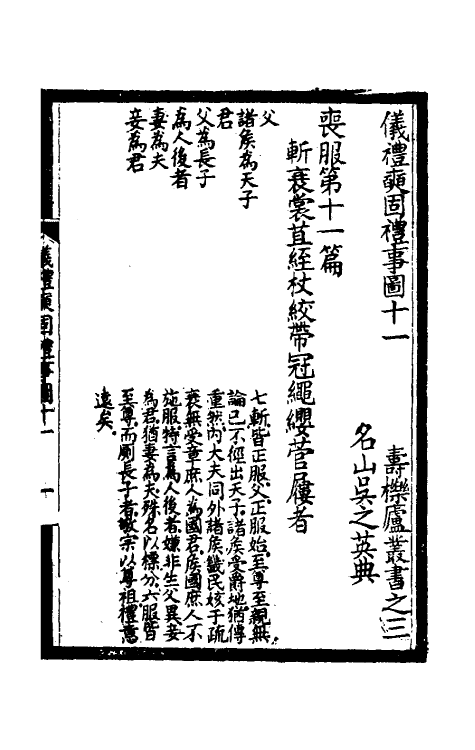 儀禮奭固禮事圖十一
壽櫟廬叢書之三
名山吳之英典
喪服第十一篇
斬衰裳苴絰杖絞帶冠繩纓菅屨者
父
諸侯為天子
君
父為長子
為人後者
妻為夫
妾為君
七斬皆正服父正服始至尊至親無
論已不徑出天子諸侯受爵地猶傳
重然內大夫同外諸侯畿民姟于疏
衰無受章庶人為國君侯國庶人不
施服特言為人後者嫌非生父異妾
為君猶妻為夫殊名以標分六服皆
至尊而廁長子者敬宗以尊祖禮意
遠矣
儀禮奭固禮事圖十一
一